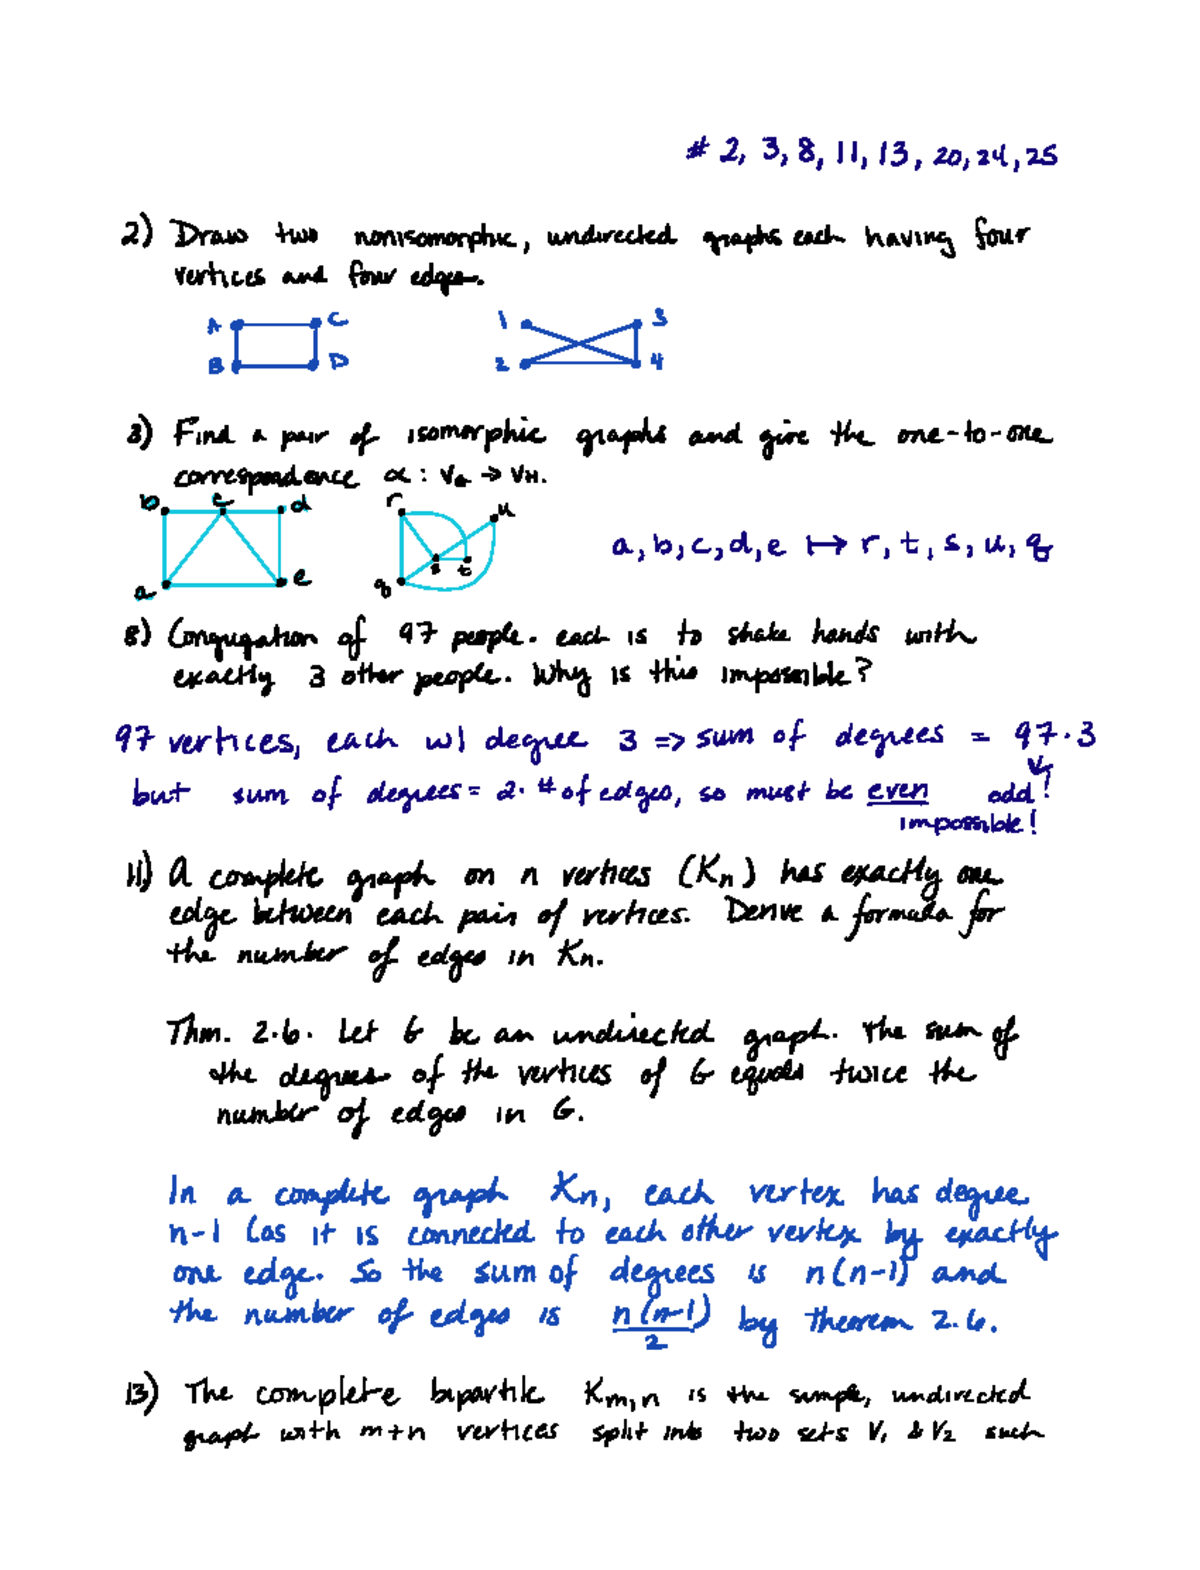 # 2, 3, 8, 11, 13, 20, 24, 25
2) Draw two nonisomorphic, undirected graphs each having four
vertices and four edges.
A C 1 3
B D 2 4
3) Find a pair of isomorphic graphs and give the one-to-one
correspondence α : V_G → V_H.
b c d r u
a, b, c, d, e ↦ r, t, s, u, q
a e q s t
8) Congugation of 97 people. each is to shake hands with
exactly 3 other people. Why is this impossible?
97 vertices, each w/ degree 3 => sum of degrees = 97·3
but sum of degrees = 2· # of edges, so must be even odd!
impossible!
11) A complete graph on n vertices (Kn) has exactly one
edge between each pair of vertices. Derive a formula for
the number of edges in Kn.
Thm. 2.6. Let G be an undirected graph. The sum of
the degrees of the vertices of G equals twice the
number of edges in G.
In a complete graph Kn, each vertex has degree
n-1 (as it is connected to each other vertex by exactly
one edge. So the sum of degrees is n(n-1) and
the number of edges is n(n-1)/2 by theorem 2.6.
13) The complete bipartite Km,n is the simple, undirected
graph with m+n vertices split into two sets V1 & V2 such